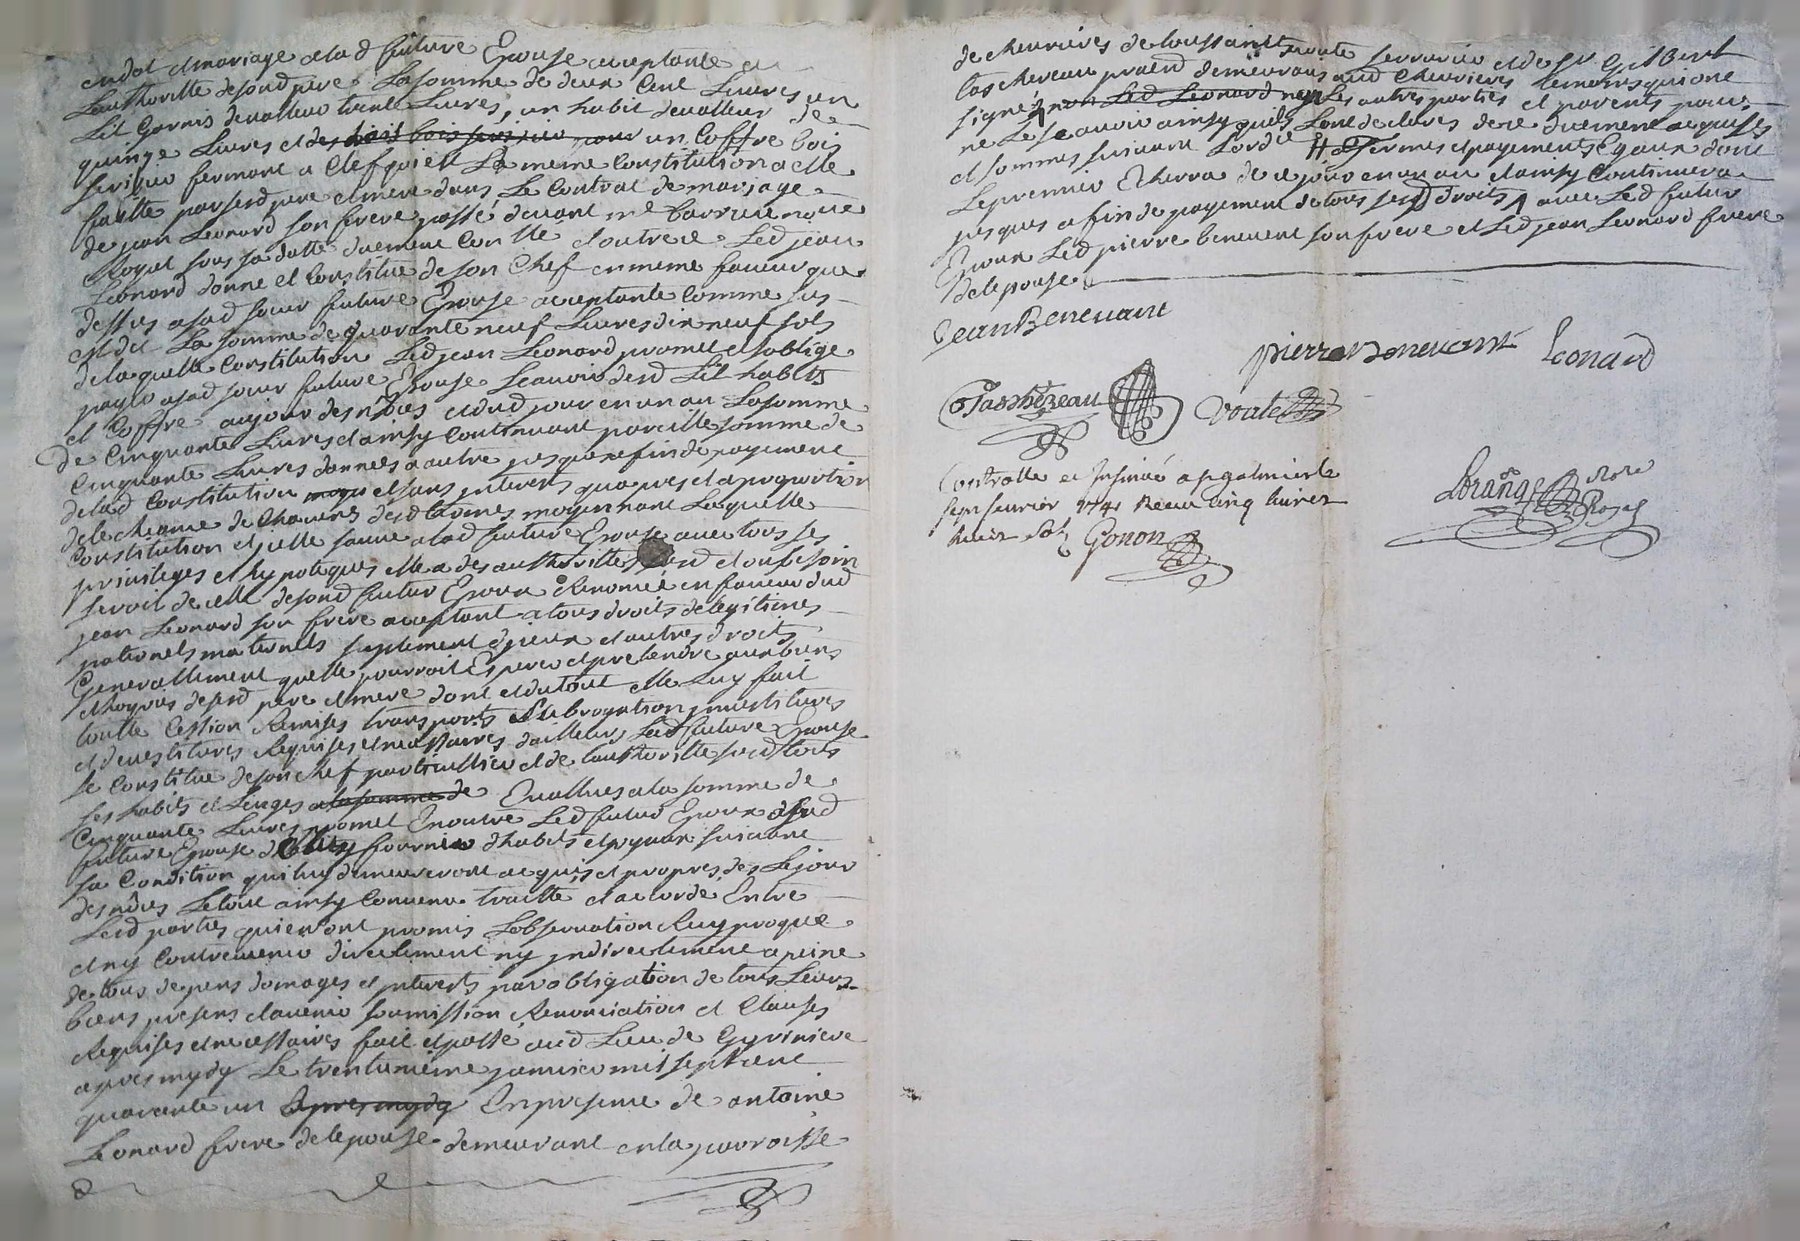 en dot et mariage a lad future Epouse acceptante de
Lauthoritte desond pere La somme de deux Cent Livres un
Lit Garnis de valleur trent Livres, un habit de valleur de
quinze Livres et des un Coffre bois
serisier fermant a Clef qui est La meme Constitution a elle
faitte par sesd pere et mere dans Le Contrat de mariage
de jean Leonard son frere passé devant me Barrieu notre
Royal sous sa datte duement Con lle et outre ce Led jean
Leonard donne et Constitue de son Chef en meme faveur que
dessus a sad soeur future Epouse acceptante Comme sus
est dit La somme de quarante neuf Livres dix neuf sols
de laquelle Constitution Led jean Leonard promet et soblige
payer a sad soeur future Epouse Scavoir lesd Lit habits
et Coffre au jour des nôces et dud jour en un an La somme
de Cinquante Livres et ainsy Continuant pareille somme de
Cinquante Livres dannée a autre jusques a fin de payement
de lad Constitution et sans jnterets qu'apres et a proportion
de lecheance de Chacuns desd termes moyennant Laquelle
Constitution et jcelle sauve a lad future Epouse avec tous ses
privileges et hypoteques elle a des authorittes susd et ou besoin
seroit de celle desond futur Epoux Renoncé en faveur dud
jean Leonard son frere acceptant a tous droits de legitimes
paternels maternels suplement djceux et autres droits
Generallement quelle pourroit Esperer et pretendre aux biens
et hoyries desesd pere et mere dont et du tout elle Luy fait
toutte Cession Remises transports subrogation jnvestitures
et devestitures Requises et necessaires dailleurs Lad future Epouse
se Constitue de son chef particullier et de lauthoritte susd tous
ses habits et Linges a la somme de Evalues a la somme de
Cinquante Livres promet Enoutre Led futur Epoux a sad
future Epouse de fournir dhabits et joyaux suivant
sa Condition qui luy demeureront acquis et propres des Le jour
des nôces Le tout ainsy Convenu traitte et accordé Entre
Lesd parties qui en ont promis Lobservation Reciproque
et ny Contrevenir directement ny jndirectement a peine
de tous depens domages et jnterets par obligation de tous Leurs
biens presens et avenir soumission Renonciation et Clauses
Requises et necessaires fait et passé aud Lieu de Gyriniere
apres mydy Le trentunieme janvier mil sept cent
quarante un apres mydy En presence de antoine
Leonard frere de lepouse demeurant en la parroisse
de chevrieres de toussaint voute serrurier et de sr Gilbert
taschereau praticn demeurans aud Chevrieres temoins qui ont
signé non Led Leonard ny Les autres parties et parents pour
ne Le scavoir ainsy quils Lont declarés de ce duement acquis
et sommes suivant Lord ce # a termes et payements Egaux dont
Le premier Echerra de ce jour en un an et ainsy Continuera
jusques a fin de payement de tous sesd droits avec Led futur
Epoux Led pierre benevent son frere et Led jean Leonard frere
de lepouse
Jean Benevant
pierre Benevent Leonard
Voute
Contrôllé et Insinué a st galmier le
sept fevrier 1741 Receu Cinq livres
huict sols Gonon
Royal